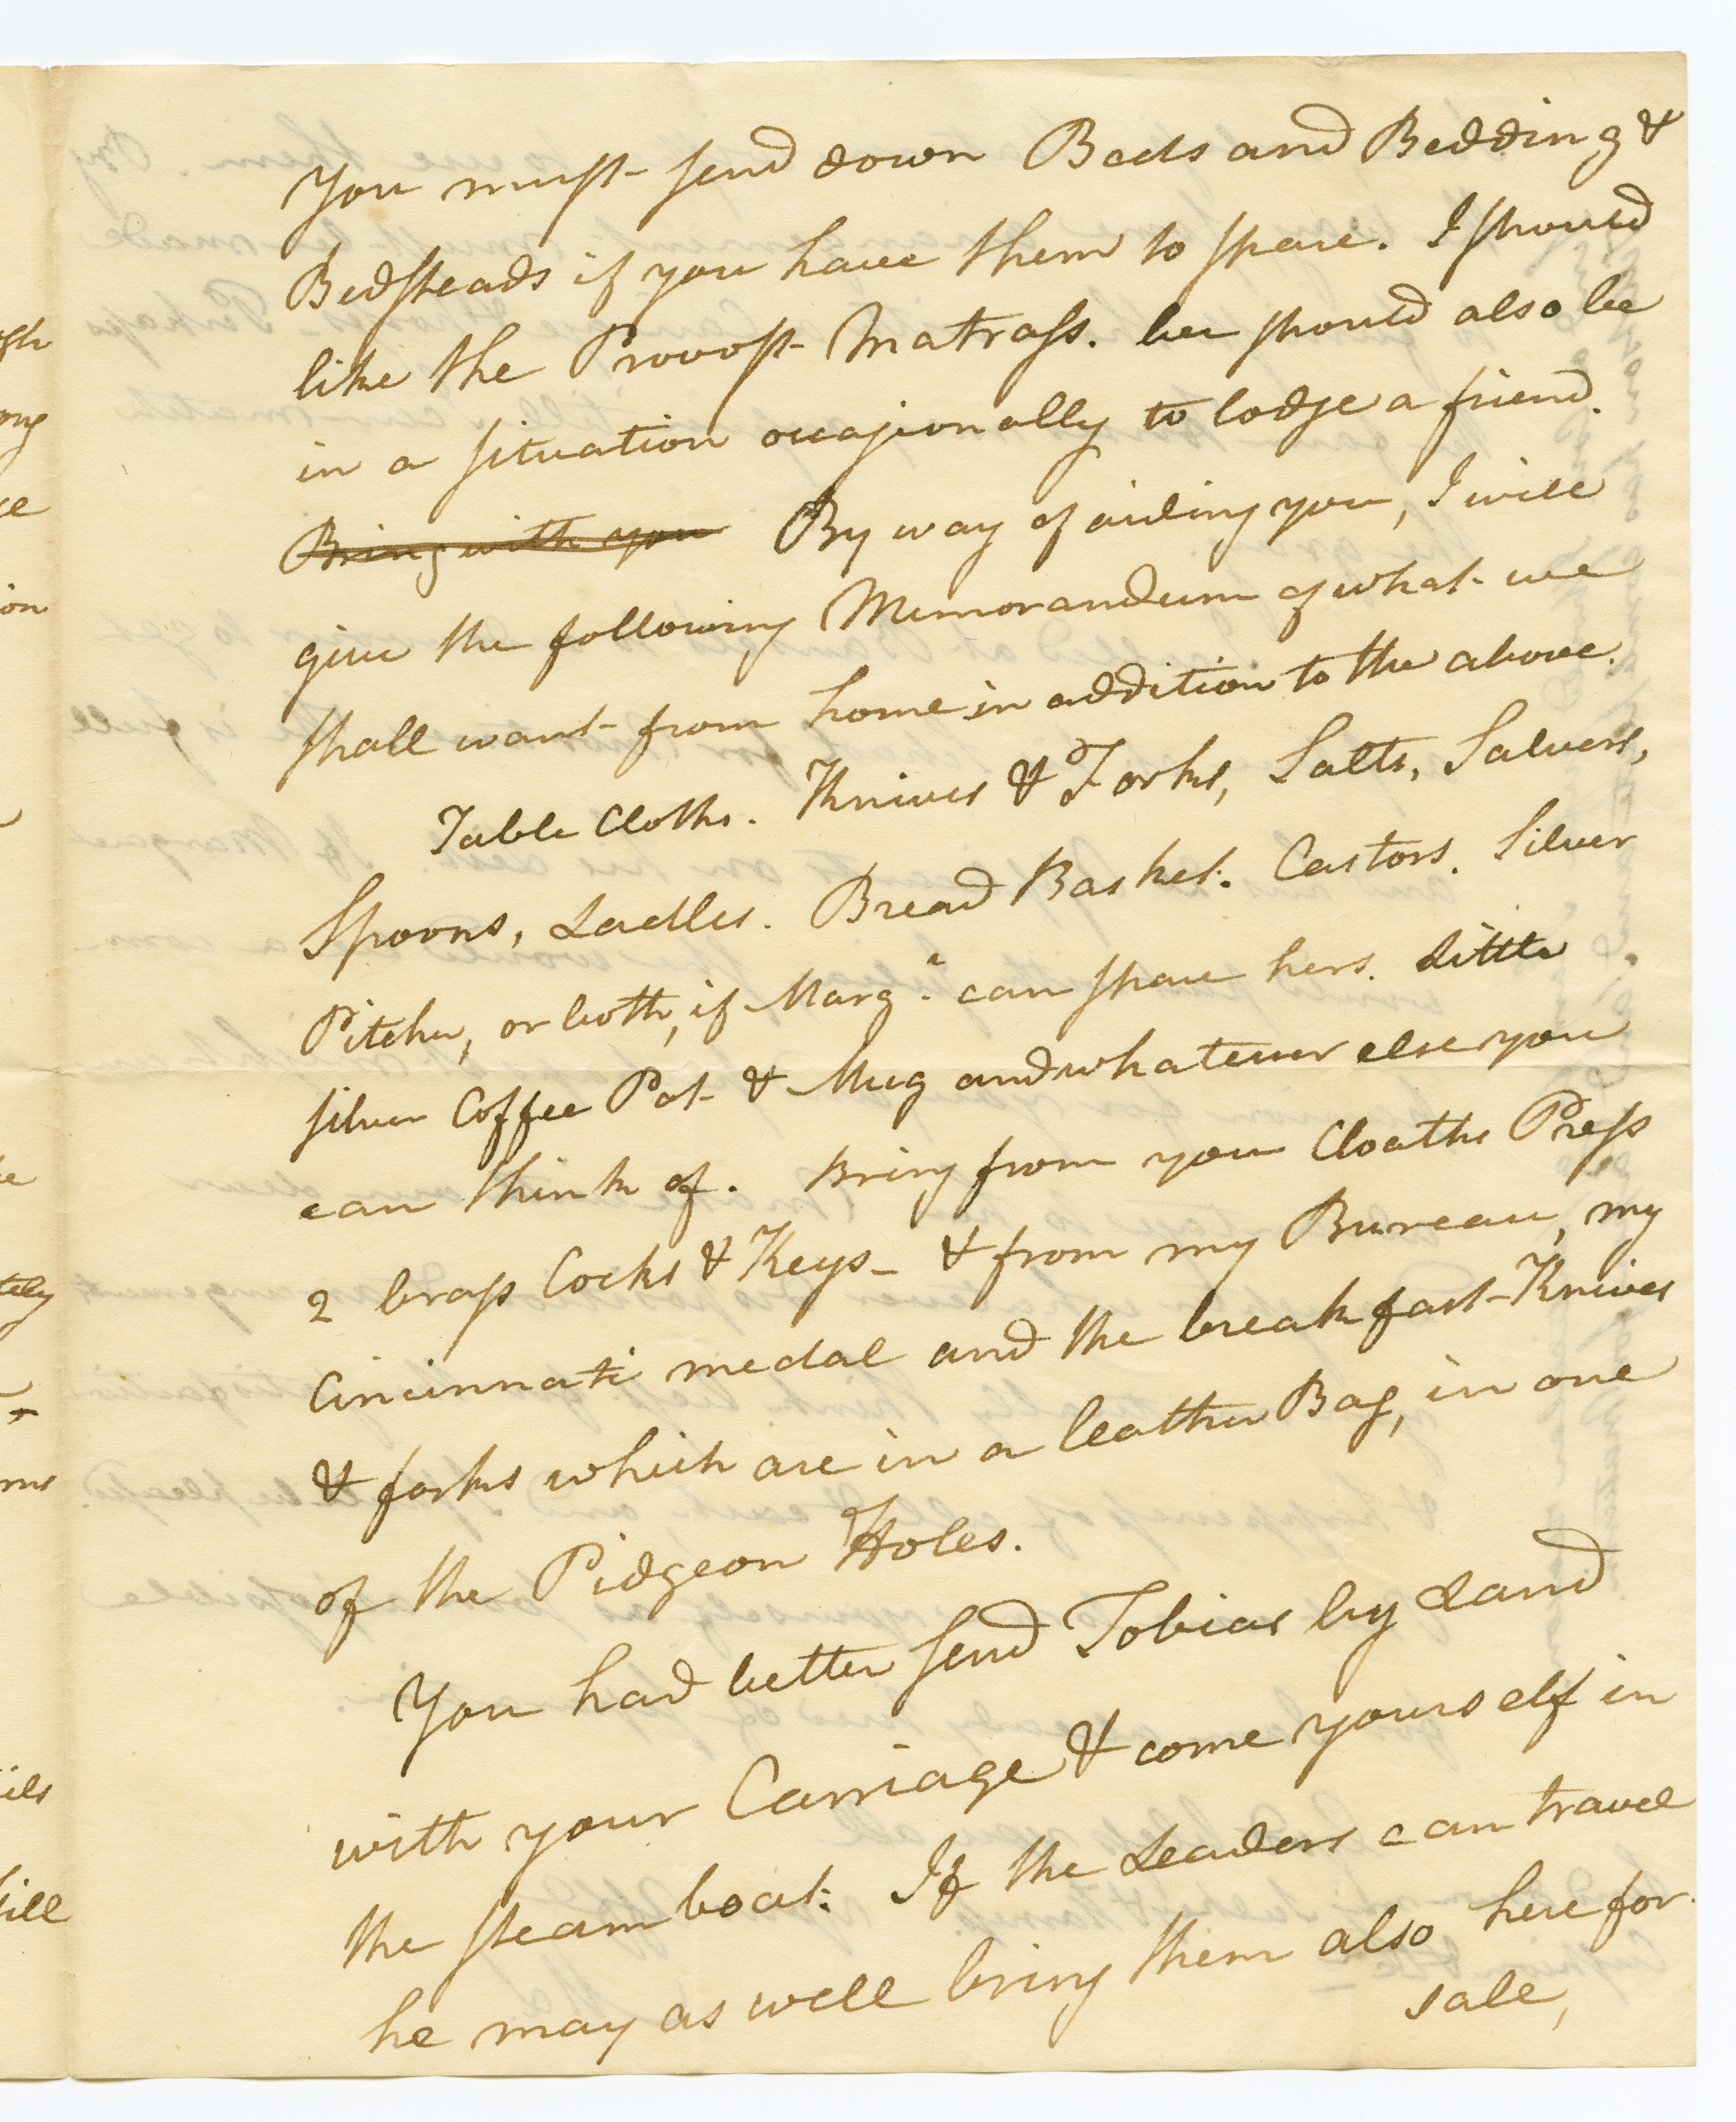 You must send down Beds and Bedding &
Bedsteads if you have them to spare. I should
like the Provost Matrass. We should also be
in a situation occasionally to lodge a friend.
Bring with you By way of aiding you, I will
give the following Memorandum of what we
shall want from home in addition to the above.
Table Cloths. Knives & Forks, Salts, Salvers,
Spoons, Ladles. Bread Basket. Castors. Silver
Pitcher, or both, if Marg.a can spare hers. Little
silver Coffee Pot & Mug and whatever else you
can think of. Bring from your Cloaths Press
2 brass Cocks & Keys_ & from my Bureau, my
Cincinnati medal and the breakfast Knives
& forks which are in a leather Bag, in one
of the Pidgeon Holes.
You had better send Tobias by Land
with your Carriage & come yourself in
the steam boat. If the Leaders can travel
he may as well bring them also here for
sale,